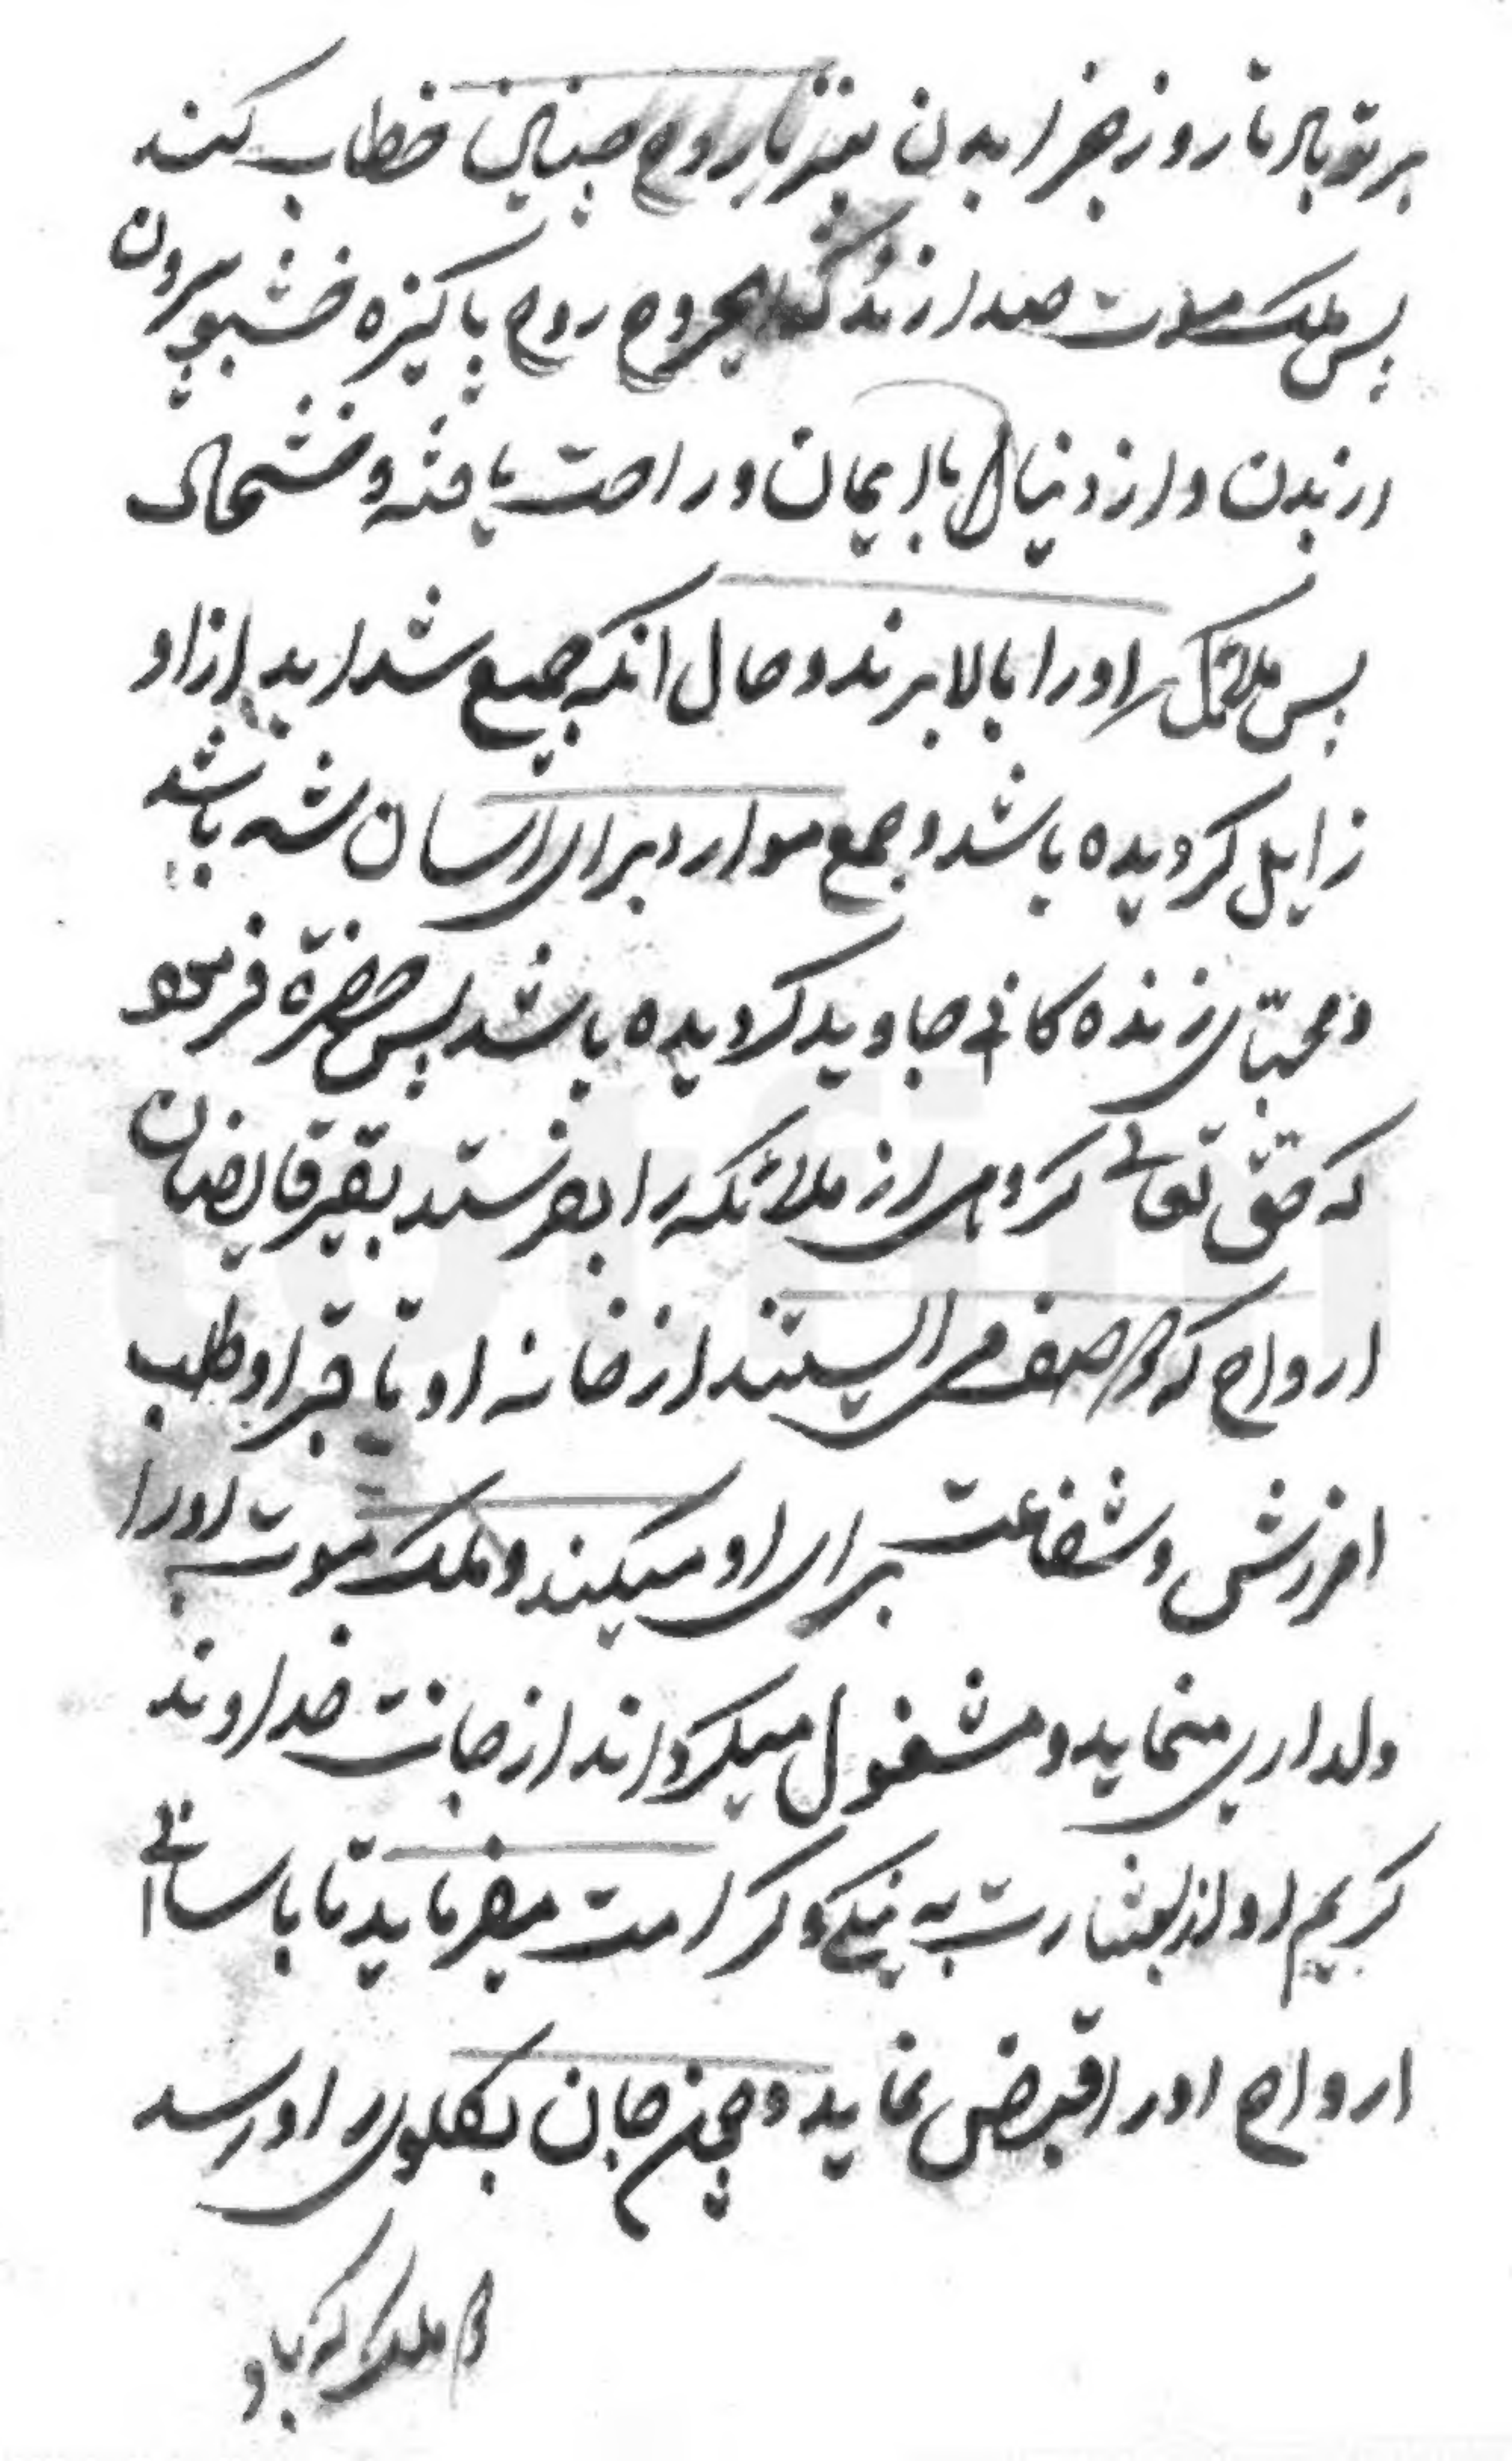 بر تو باد تا روز جزا بدن نیز بار روح چنان خطاب کند
پس ملک موت صدا زند که ای روح پاکیزه خشبو بیرون
از بدن و از دنیا با ایمان و راحت یافته و خشحال
پس ملائک او را بالا برند و حال انکه جمیع شداید از او
زایل کردیده باشد و جمع موارد برای اسان شه باشد
و محیای زنده کانی جاوید کردیده باشد پس حضرة فرمود
که حق تعالی کروهی از ملائکه را بفرستد بغیر قابضان
ارواح که در صف می ایستند از خانه او تا قبر او طلب
امرزش و شفاعت برای او میکنند و ملک موت او را
دلداری مینماید و مشغول میکرداند از جانب خداوند
کریم او را بشارت به نیکی و کرامت میفرماید تا باسانی
ارواح او را قبض نماید و چون جان بکلوی او رسد
ملک که باو